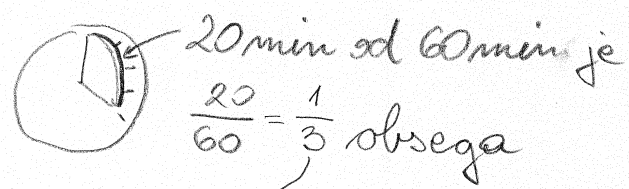 20 min od 60 min je
20/60 = 1/3 obsega